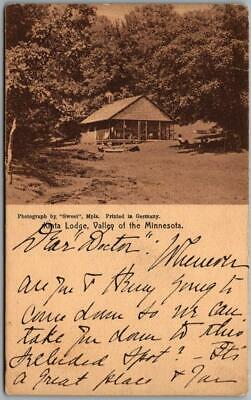 Photograph by "Sweet", Mpls. Printed in Germany.
Kinta Lodge, Valley of the Minnesota.
Dear "Doctor": Whenever
are you & going to
come down so we can
take you down to this
Secluded Spot? - It's
a Great place &